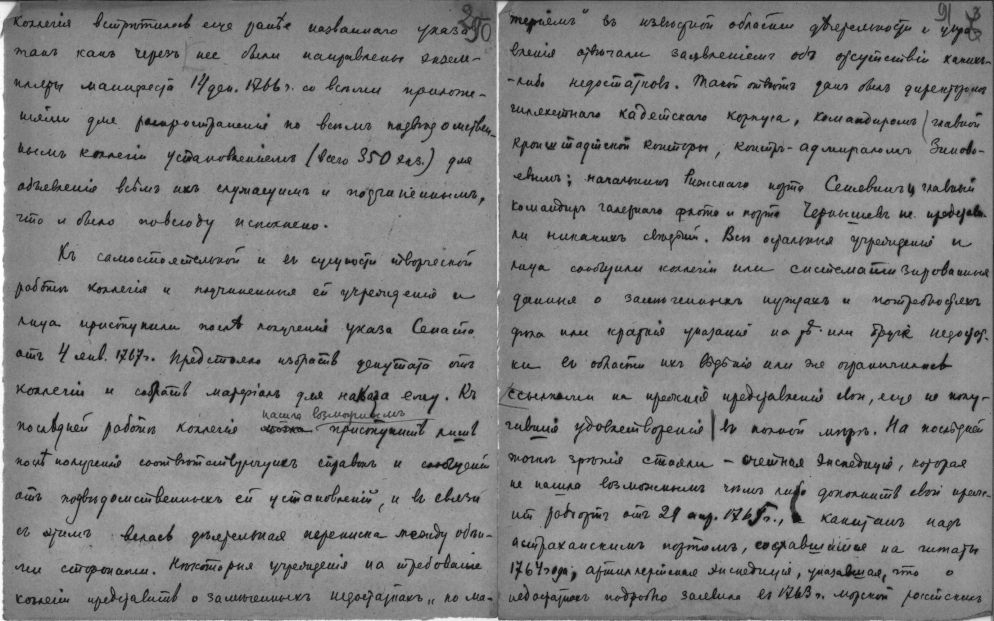 250
коллегія встрѣтилась еще ранѣе названнаго указа
такъ какъ черезъ нее были направлены экзем-
пляры манифеста 14 дек. 1766 г. со всѣми приложе-
ніями для распространенія по всѣмъ подвѣдомствен-
нымъ коллегіи установленіямъ (всего 350 экз.) для
объявленія всѣмъ ихъ служащимъ и подчиненнымъ,
что и было повсюду исполнено.
Къ самостоятельной и въ сущности творческой
работѣ коллегія и подчиненныя ей учрежденія и
лица приступили послѣ полученія указа Сената
отъ 4 янв. 1767 г. Предстояло избрать депутата отъ
коллегіи и собрать матеріалъ для наказа ему. Къ
нашла возможнымъ
послѣдней работѣ коллегія приступить лишь
послѣ полученія соотвѣтствующихъ справокъ и сообщеній
отъ подвѣдомственныхъ ей установленій, и въ связи
съ этимъ велась дѣятельная переписка между обѣи-
ми сторонами. Нѣкоторыя учрежденія на требованіе
коллегіи представить о замѣченныхъ недостаткахъ „по ма-
91
теріямъ" въ извѣстной области дѣятельности и упра-
вленія отвѣчали заявленіемъ объ отсутствіи какихъ-
-либо недостатковъ. Такой отвѣтъ данъ былъ директоромъ
шляхетнаго кадетскаго корпуса, командиромъ главной
Кронштадтской конторы, контръ-адмираломъ Зиновь-
евымъ; начальникъ Рижскаго порта Селивачевъ и главный
командиръ галернаго флота и порта Чернышевъ не представи-
ли никакихъ свѣдѣній. Всѣ остальныя учрежденія и
лица сообщили коллегіи или систематизированныя
данныя о замѣченныхъ нуждахъ и потребностяхъ
флота или краткія указанія на тѣ или другіе недостат-
ки въ области ихъ вѣдѣнія или же ограничились
ссылками на прежнія представленія свои, еще не полу-
чившія удовлетворенія въ полной мѣрѣ. На послѣдней
точкѣ зрѣнія стояли – счетная экспедиція, которая
не нашла возможнымъ чѣмъ либо дополнить свой преж-
ній рапортъ отъ 29 апр. 1765 г., капитанъ надъ
астраханскимъ портомъ, сославшійся на штаты
1764 года, артиллерійская экспедиція, указавшая, что о
недостаткахъ подробно заявила въ 1763 г. морской россійскихъ